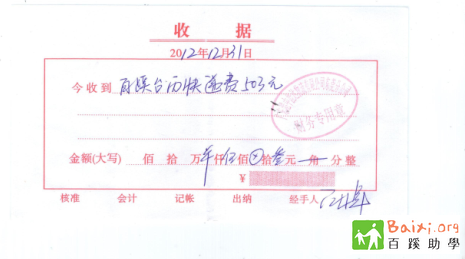 收 据
2012年12月31日
今收到 百蹊台历快递费503元
财务专用章
金额(大写) 佰 拾 万 仟伍佰 拾叁元 角 分整
¥
核准 会计 记帐 出纳 经手人
Baixi.org
百蹊助學